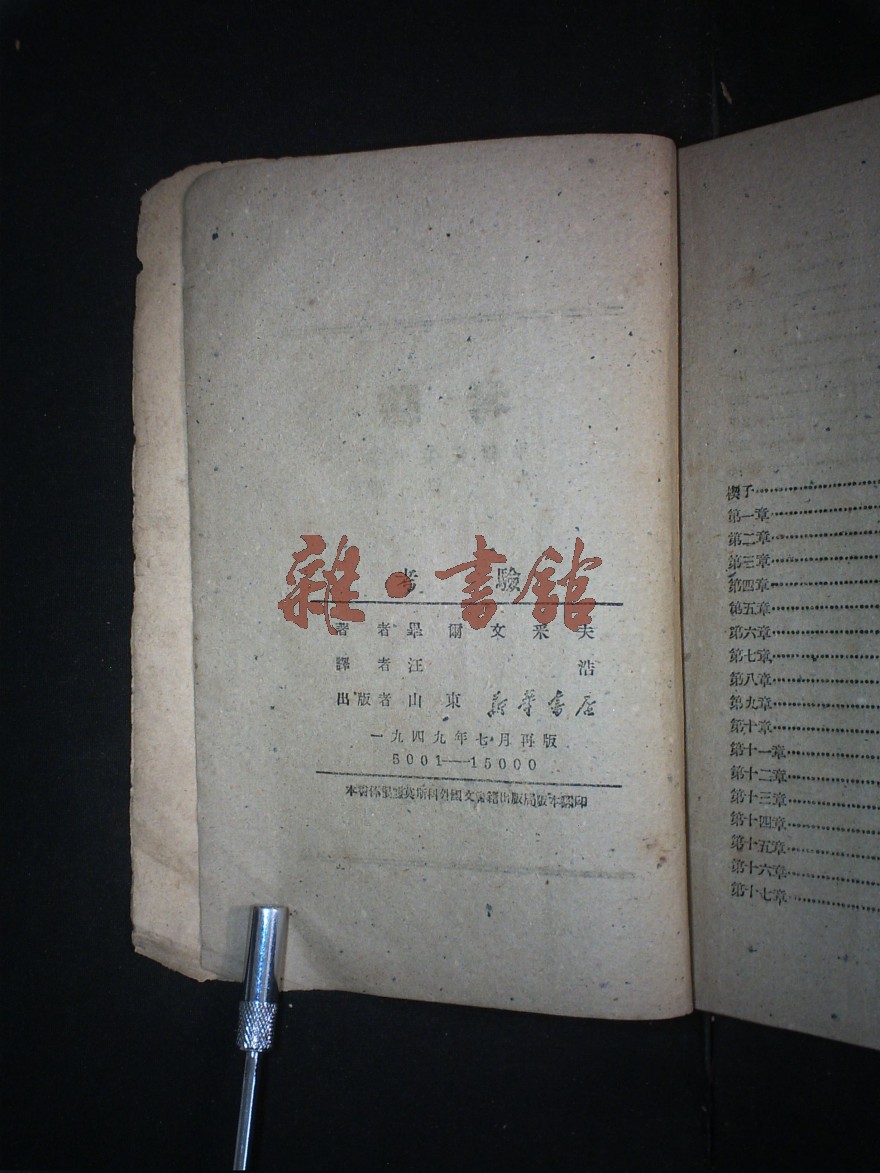 雜·書館
考驗
著者畢爾文采夫
譯者汪浩
出版者山東新華書店
一九四九年七月再版
5001—15000
本書係根據莫斯科外國文書籍出版局版本翻印
楔子
第一章
第二章
第三章
第四章
第五章
第六章
第七章
第八章
第九章
第十章
第十一章
第十二章
第十三章
第十四章
第十五章
第十六章
第十七章